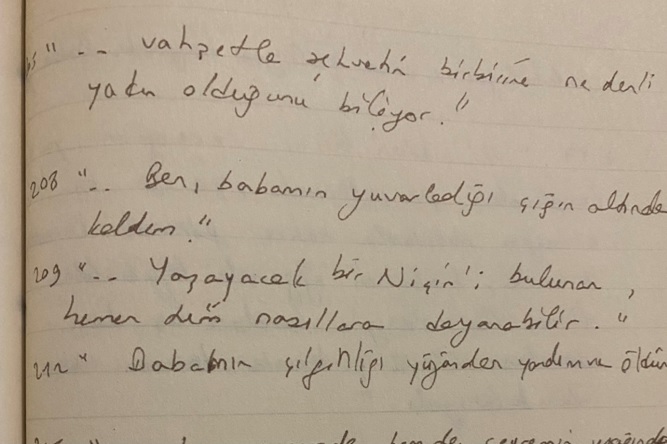 " .. vahşetle şehvetin birbirine ne denli
yakın olduğunu biliyor."
208 ".. Ben, babamın yuvarladığı çığın altında
kaldım."
209 ".. Yaşayacak bir Niçin'i bulunan,
hemen tüm nasıllara dayanabilir."
212 " Babamın çılgınlığı yüzünden yandım ve